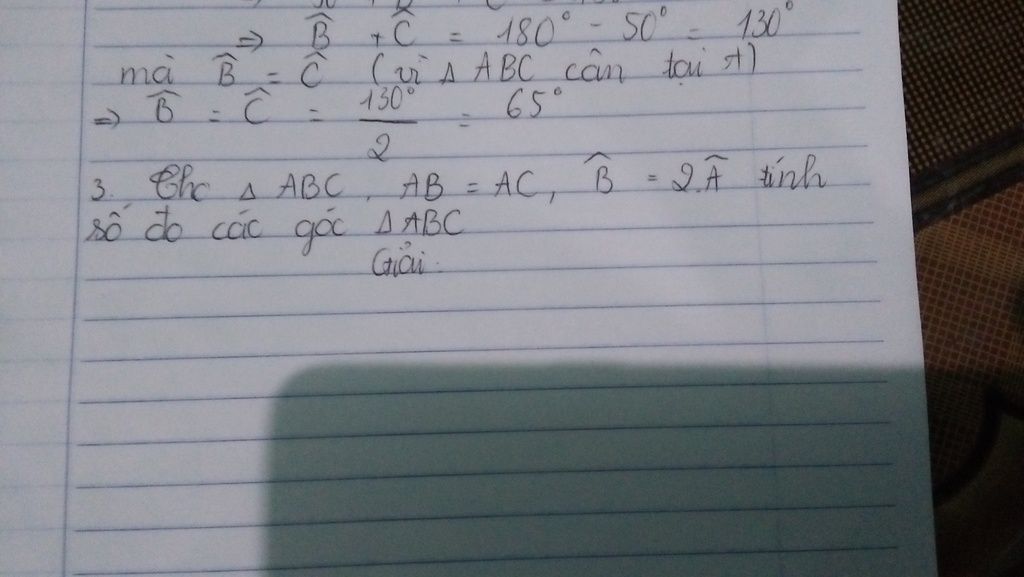 ⇒ B̂ + Ĉ = 180° - 50° = 130°
mà B̂ = Ĉ (vì Δ ABC cân tại A)
⇒ B̂ = Ĉ = 130°/2 = 65°
3. Cho Δ ABC, AB = AC, B̂ = 2.Â tính
số đo các góc Δ ABC
Giải